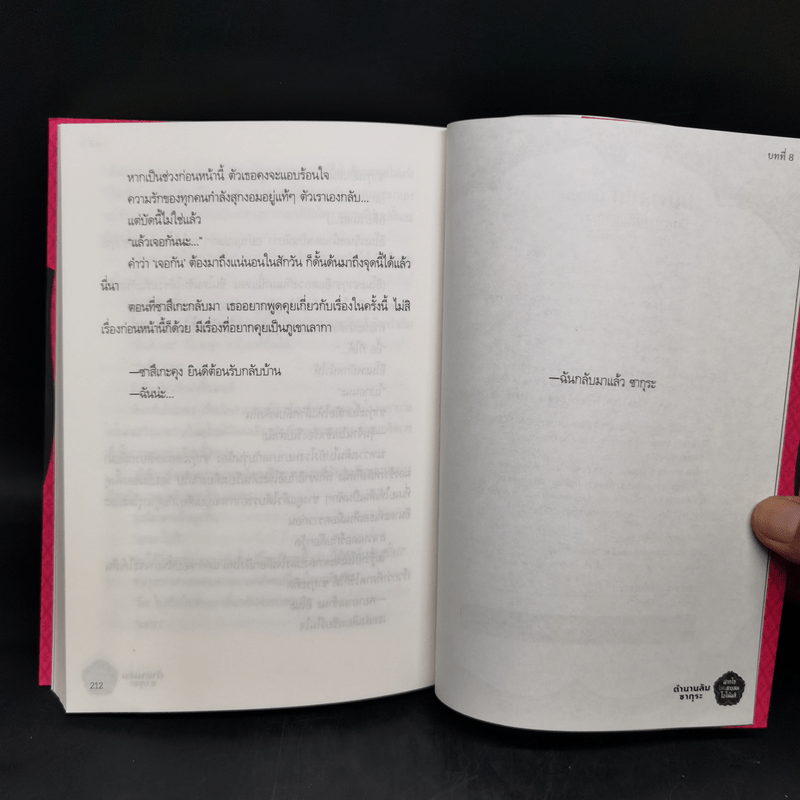 หากเป็นช่วงก่อนหน้านี้ ตัวเธอคงจะแอบร้อนใจ
ความรักของทุกคนกำลังสุกงอมอยู่แท้ๆ ตัวเราเองกลับ...
แต่บัดนี้ไม่ใช่แล้ว
“แล้วเจอกันนะ...”
คำว่า ‘เจอกัน’ ต้องมาถึงแน่นอนในสักวัน ก็ดั้นด้นมาถึงจุดนี้ได้แล้ว
นี่นา
ตอนที่ซาสึเกะกลับมา เธออยากพูดคุยเกี่ยวกับเรื่องในครั้งนี้ ไม่สิ
เรื่องก่อนหน้านี้ก็ด้วย มีเรื่องที่อยากคุยเป็นภูเขาเลากา
—ซาสึเกะคุง ยินดีต้อนรับกลับบ้าน
—ฉันน่ะ...
212
บทที่ 8
—ฉันกลับมาแล้ว ซากุระ
ตำนานลับ
ซากุระ